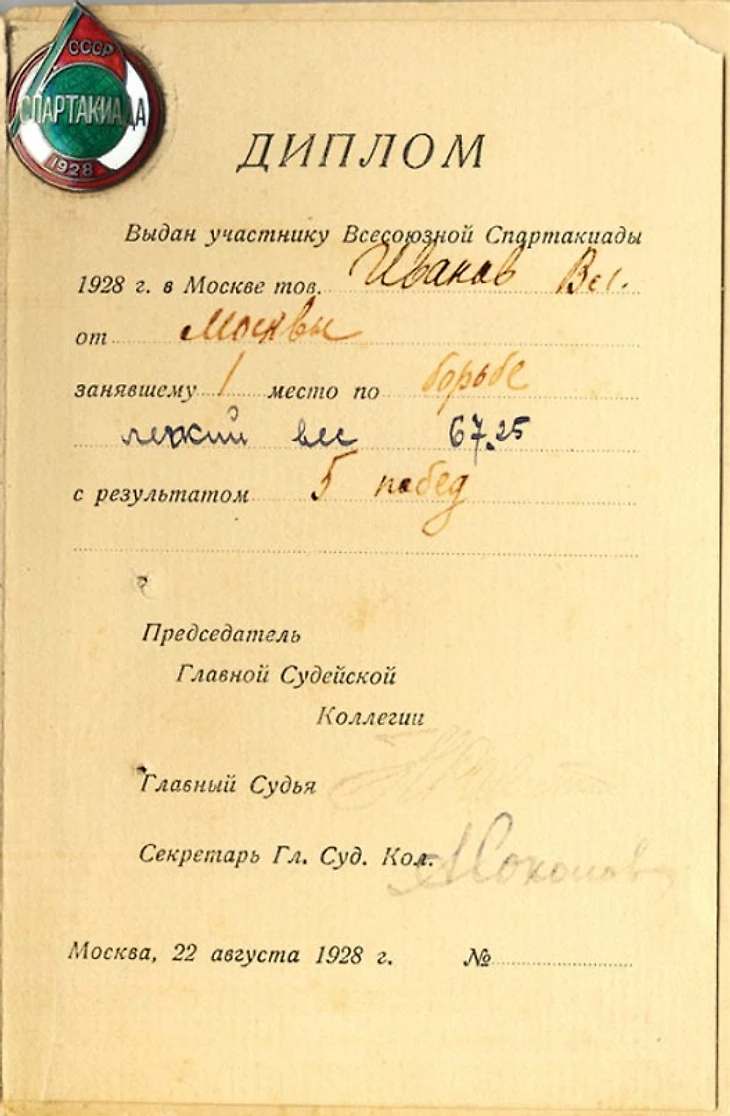 СССР
СПАРТАКИАДА
1928
ДИПЛОМ
Выдан участнику Всесоюзной Спартакиады
1928 г. в Москве тов. Иванов Вс.
от Москвы
занявшему 1 место по борьбе
легкий вес 67.25
с результатом 5 побед
Председатель
Главной Судейской
Коллегии
Главный Судья
Секретарь Гл. Суд. Кол.
Москва, 22 августа 1928 г. №